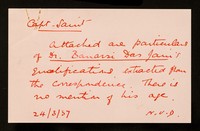 Capt. Saint
Attached are particulars
of Dr. Banarsi Das Jain's
qualifications extracted from
the correspondence. There
is no mention of his age.
24/3/37 N.V.D.